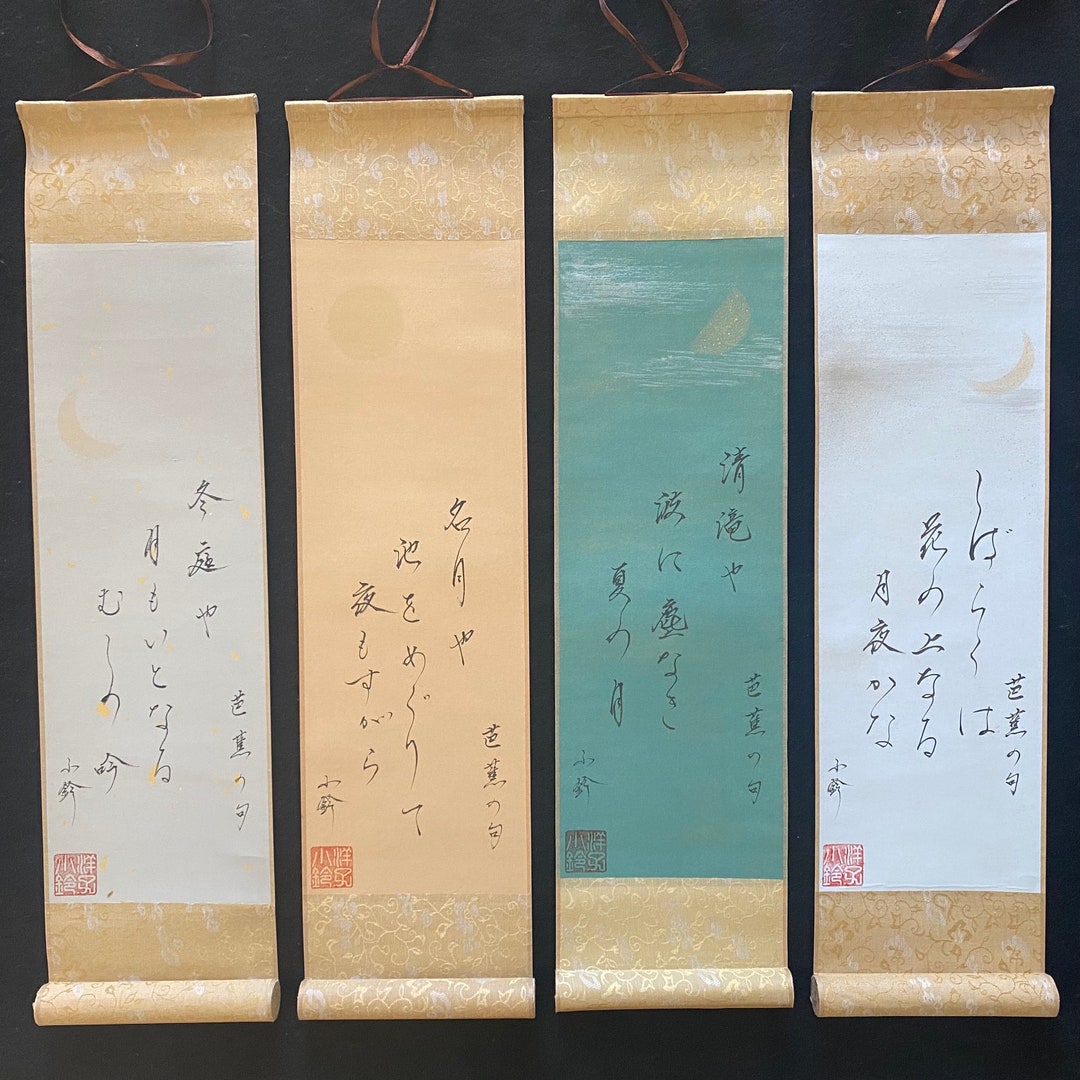 芭蕉の句
しばらくは
花の上なる
月夜かな
小鈴
洋子
小鈴
芭蕉の句
清滝や
波に塵なき
夏の月
小鈴
洋子
小鈴
芭蕉の句
名月や
池をめぐりて
夜もすがら
小鈴
洋子
小鈴
芭蕉の句
冬庭や
月もいとなる
むしの吟
小鈴
洋子
小鈴